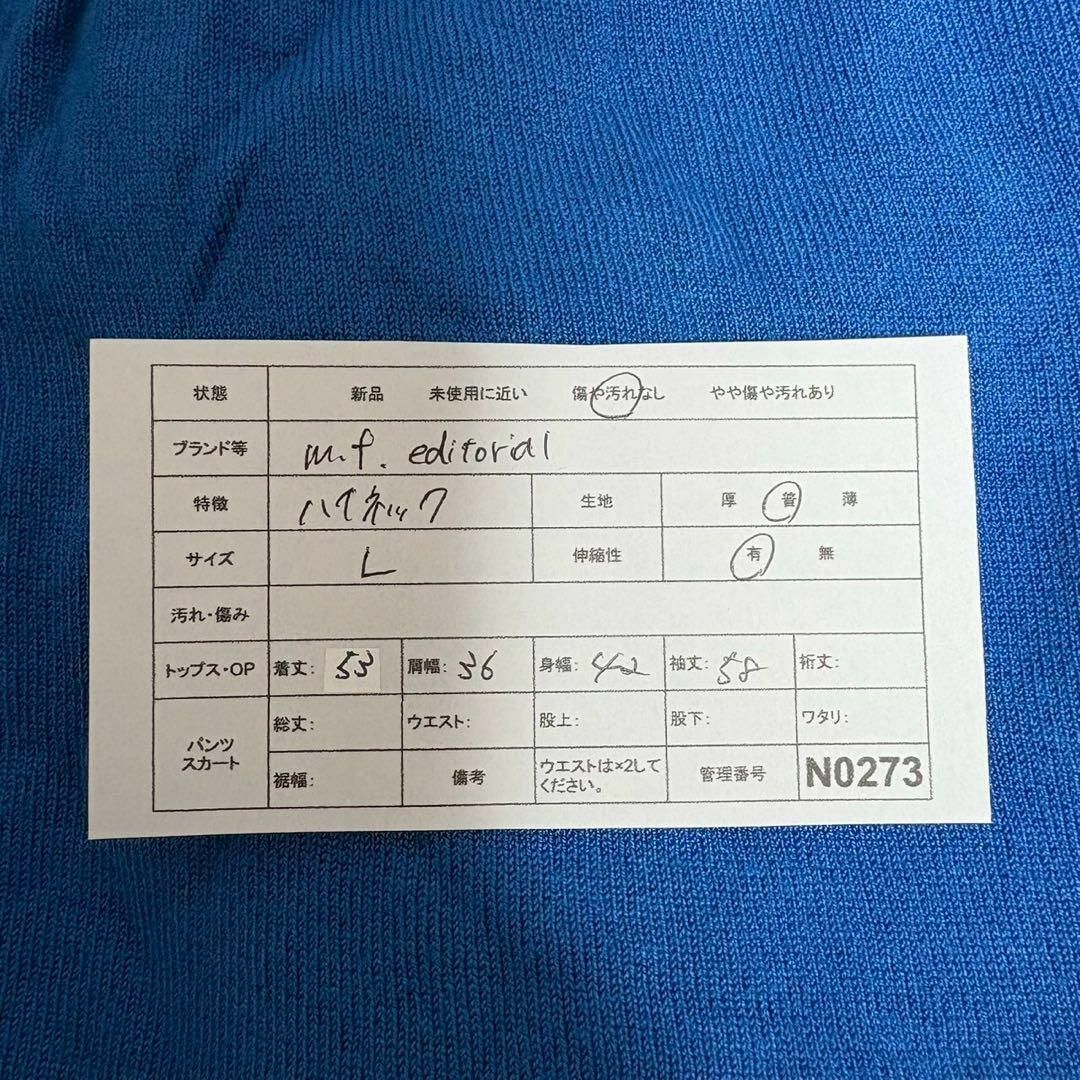 状態 新品 未使用に近い 傷や汚れなし やや傷や汚れあり
ブランド等 m.f. editorial
特徴 ハイネック 生地 厚 普 薄
サイズ L 伸縮性 有 無
汚れ・傷み
トップス・OP 着丈: 53 肩幅: 36 身幅: 42 袖丈: 58 裄丈:
パンツ スカート 総丈: ウエスト: 股上: 股下: ワタリ:
裾幅: 備考 ウエストは×2して ください。 管理番号 N0273